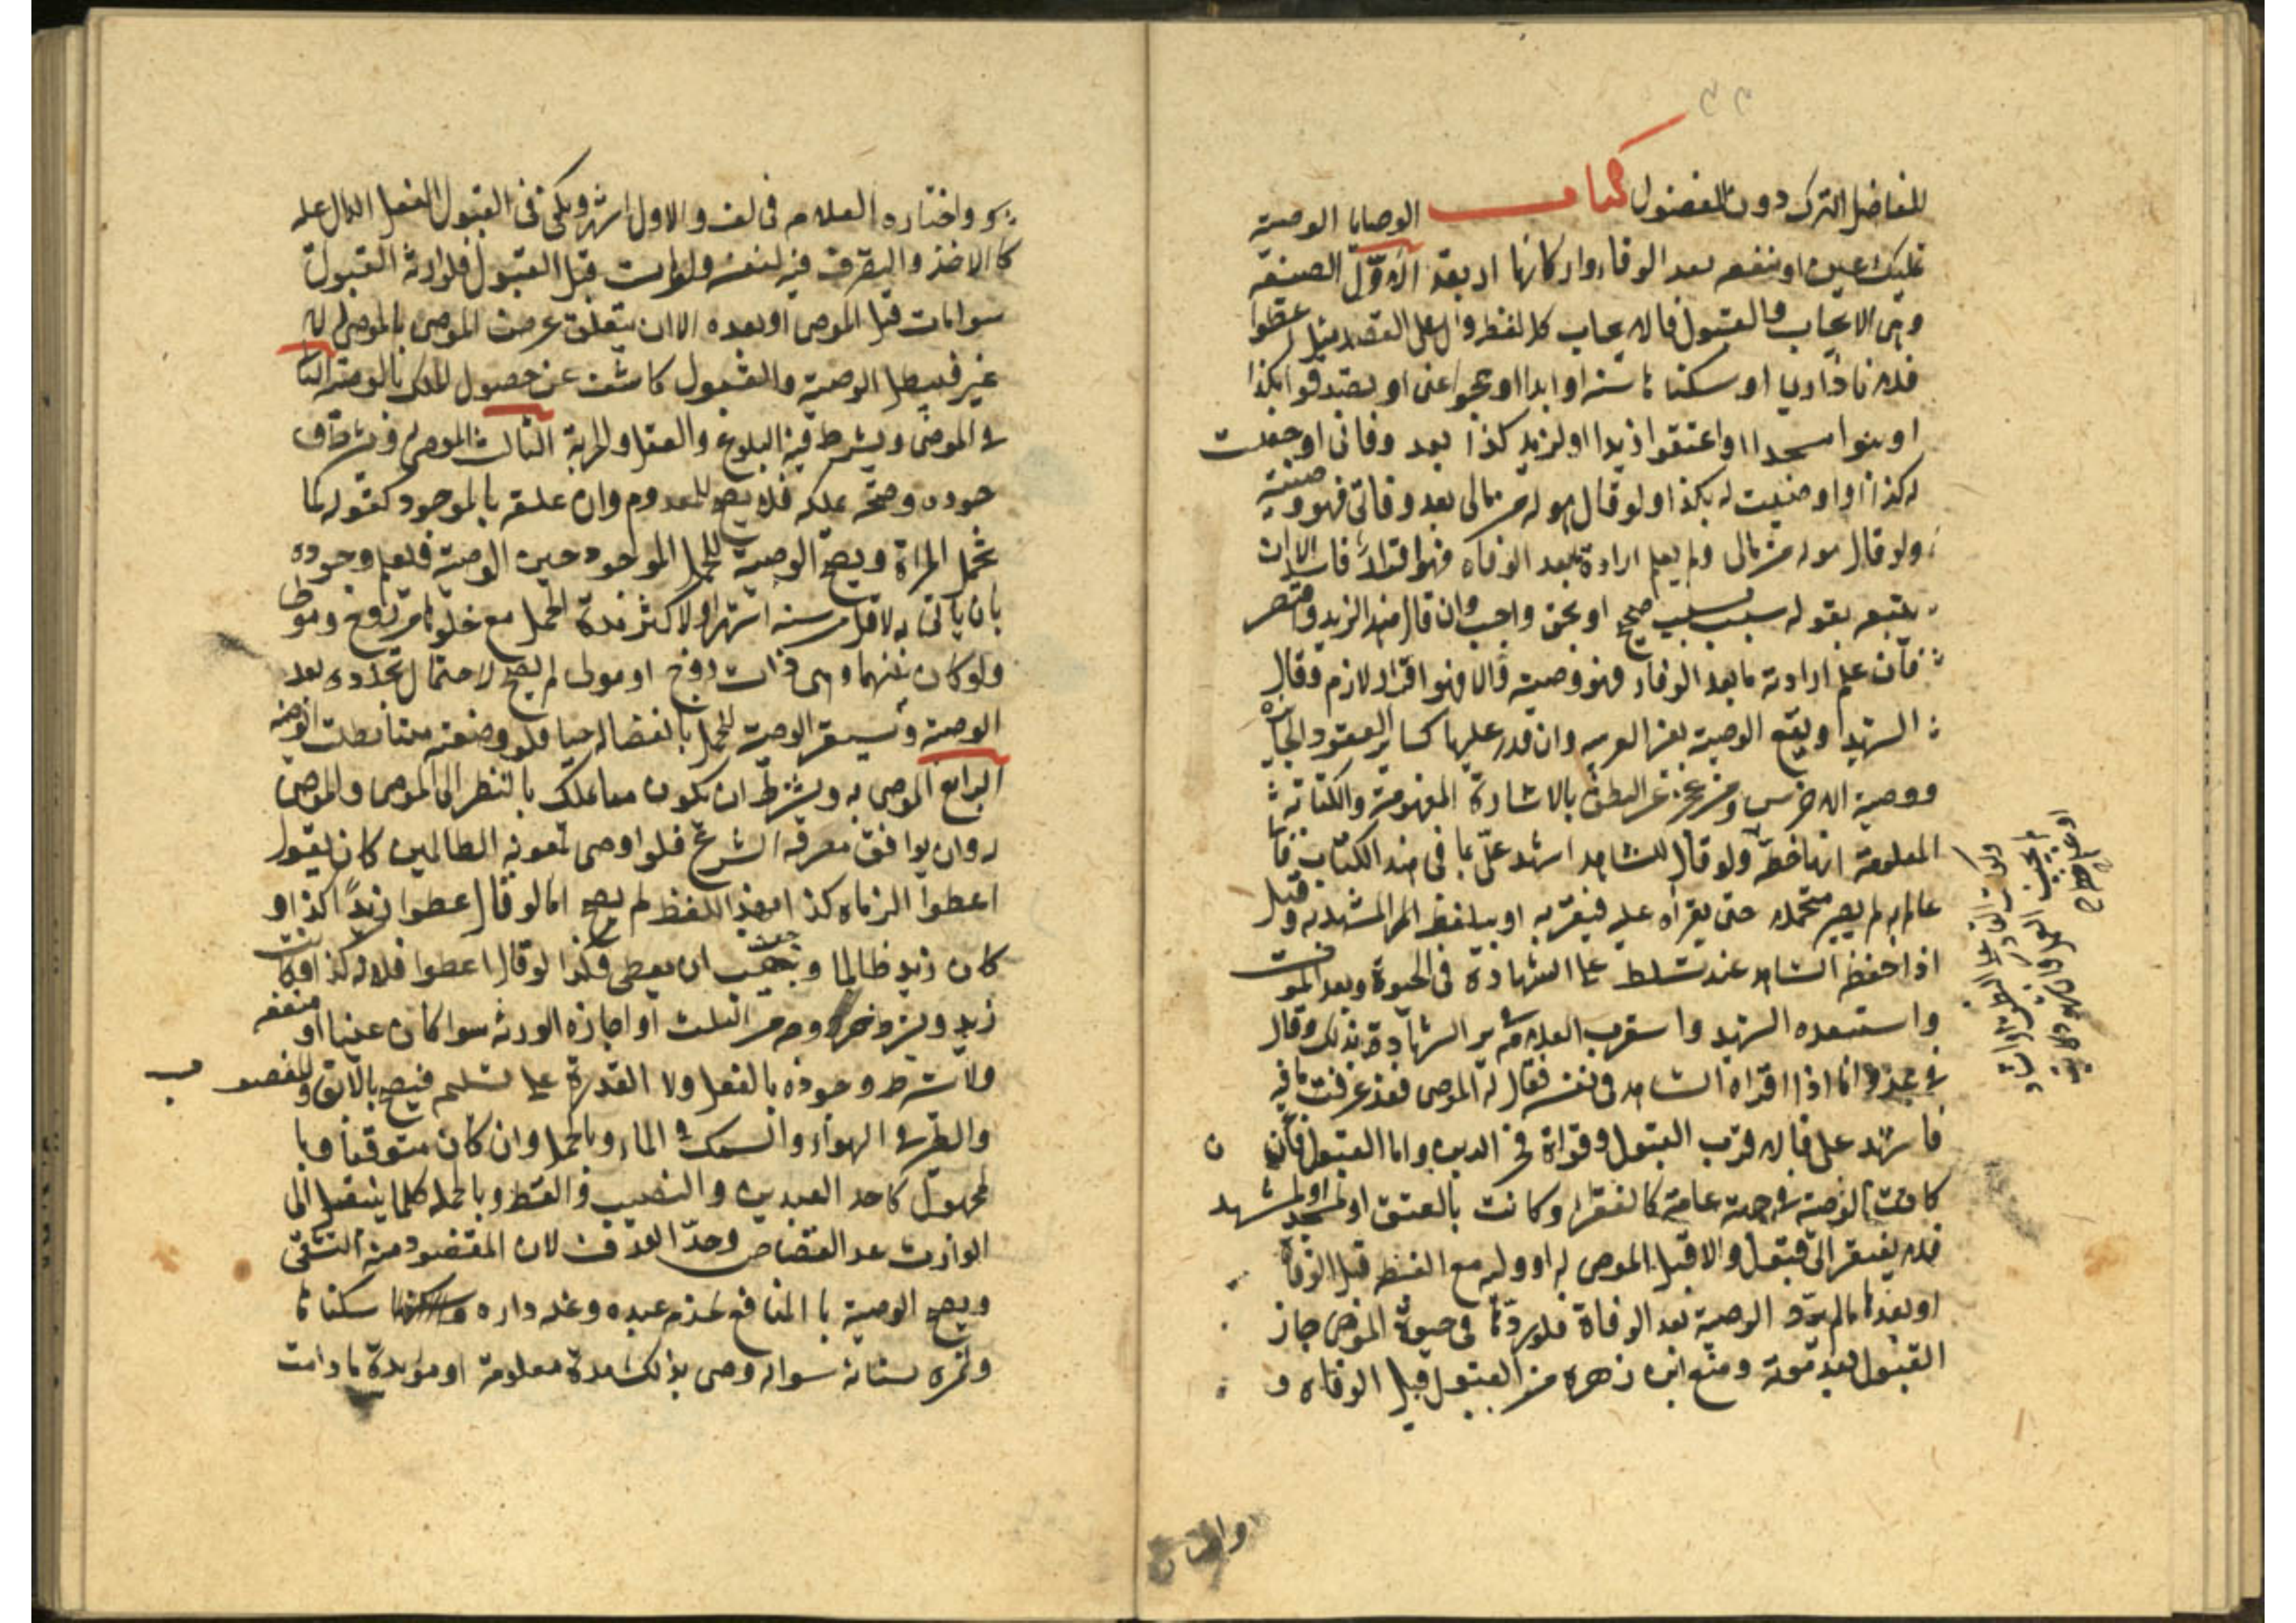 للفاضل الترك دون المفضول كتاب الوصايا الوصية
تمليك عين او منفعة بعد الوفاة واركانها اربعة الاول الصيغة
وهي الايجاب والقبول فالايجاب كل لفظ دال على القصد مثل اعطوا
فلانا دارنا او سكناها سنة او ابدا او حجوا عني او تصدقوا بكذا
او ابنوا مسجدا او اعتقوا زيدا او لزيد كذا بعد وفاتي او جعلت
له كذا او اوصيت له بكذا ولو قال هو له من مالي بعد وفاتي فهو وصية
ولو قال هو له من مالي ولم يعلم ارادة بعد الوفاه فهو اقرار فاسد الا ان
يتبعه بقوله بسبب صحيح او بحق واجب وان قال هذا لزيد واقتصر
فان علم ارادته ما بعد الوفاة فهو وصية والا فهو اقرار لازم وقال
الشهيد ويقع الوصية بغير العربيه وان قدر عليها كساير العقود الجايزه
ووصية الاخرس ومن عجز عن النطق بالاشارة المفهومة والكتابة
المعلومة انها خطه ولو قال للشاهد اشهد علي بما في هذا الكتاب فانا
عالم به لم يصر متحملا حتى يقرأه عليه فيقر به او بيلفظ المشهد به وقيل
اذا حفظ الشاهد عنده تسلط على الشهادة في الحيوة وبعد الموت
واستبعده الشهيد واستقرب العلامة الشهادة بذلك وقال
اما اذا اقراه الشاهد في نفسه فقال له الموصى قد عرفت ما فيه
فاشهد علي فالاقرب القبول وقواه فخر الدين واما القبول فان
كانت الوصية في جهة عامة كالفقرا وكانت بالعتق او لمسجد او لمشهد
فلا يفتقر الى قبول والا قبل الموصى له او وليه مع اللفظ قبل الوفاة
او بعدها ما لم يرد الوصية بعد الوفاة فلو ردها في حيوة الموصي جاز
القبول بعد موته ومنع ابن زهره من القبول قبل الوفاه و
ولو كتب القادر على النطق
و واختاره العلامه في لف والاول اشهر ويكفي في القبول الفعل الدال عليه
كالاخذ والتصرف فيه لنفسه ولو مات قبل القبول فلوارثه القبول
سوا مات قبل الموصى او بعده الا ان يتعلق غرض الموصى بالموصى له
غير فيبطل الوصية والقبول كاشف عن حصول الملك بالوصية الثا
في الموصى ويشرط فيه البلوغ والعقل والحرية الثالث الموصى له وشرطه
وجوده وصحة ملكه فلا يصح للمعدوم وان علقه بالموجود كقوله لما
تحمل المراة ويصح الوصية للحمل الموجود حين الوصية فيعلم وجوده
بان ياتى به لاقل من ستة اشهر او لاكثر مدة الحمل مع خلوها من زوج ومولى
ولو كان بينهما وهي ذات زوج او مولى لم يصح لاحتمال تجدده بعد
الوصية ويستقر الوصية للحمل بانفصاله حيا فلو وضعته ميتا بطلت الوصية
الرابع الموصى به ويشترط ان يكون مما يملك بالنظر الى الموصى والموصى
له وان يوافق معرفة الشرع فلو اوصى لمعونة الظالمين كان يقول
اعطوا الزناه كذا بهذا اللفظ لم يصح اما لو قال اعطوا زيدا كذا و
كان زيد ظالما وجب ان يعطى وكذا لو قال اعطوا فلانه كذا وكانت
من الثلث او اجازه الورثه سوا كان عينا او منفعه
ولا يشرط وجوده بالفعل ولا القدرة على تسليم فيصح بالابق والمغصوب
والطير في الهواء والسمك في الماء وبالحمل وان كان متوقعا وبا
لمجهول كاحد العبدين والنصيب والقسط وبالجمله كلما ينتقل الى
الوارث عدا القصاص وحد القذف لان المقصود منه التشفي
ويصح الوصية بالمنافع كخدم عبده وغله داره سكناها
وثمره بستانه سوا اوصى بذلك مدة معلومة او مؤبدة ما دامت